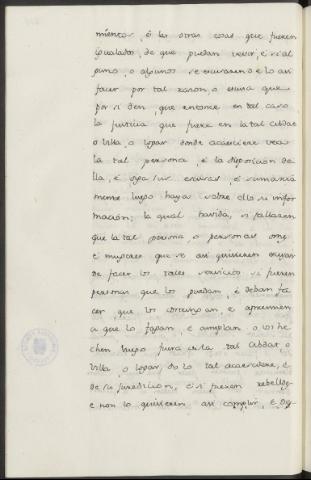 mientos, o las otras cosas que fueren
igualados, de que puedan vevir, e si al
guno, o algunos se escusaren de lo asi
facer por tal razon, o escusa que
por si den, que entonce en tal caso
la Justicia que fuere en la tal Cibdat
o Villa, o logar donde acaesciere vea
la tal persona, e la disposicion de
lla, e oya sus escusas, e sumaria
mente luego haya sobre ello su infor
macion; la qual havida, si fallaren
que la tal persona, o personas omes
e mugeres que se asi quisieren escusar
de facer los tales servicios si fueren
personas que los puedan, e deban fa
cer que los costringan, e apremien
a que lo fagan, e cumplan, o los he
chen luego fuera de la tal Cibdat o
Villa, o logar, do lo tal acaesciere, e
de su juredicion, e si fueren rebelles
e non lo quisieren asi complir, e de